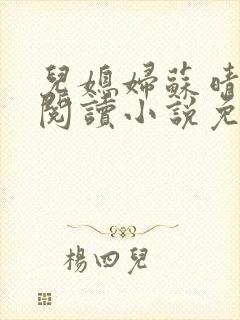 兒媳婦蘇晴
閱讀小說免
楊四兒